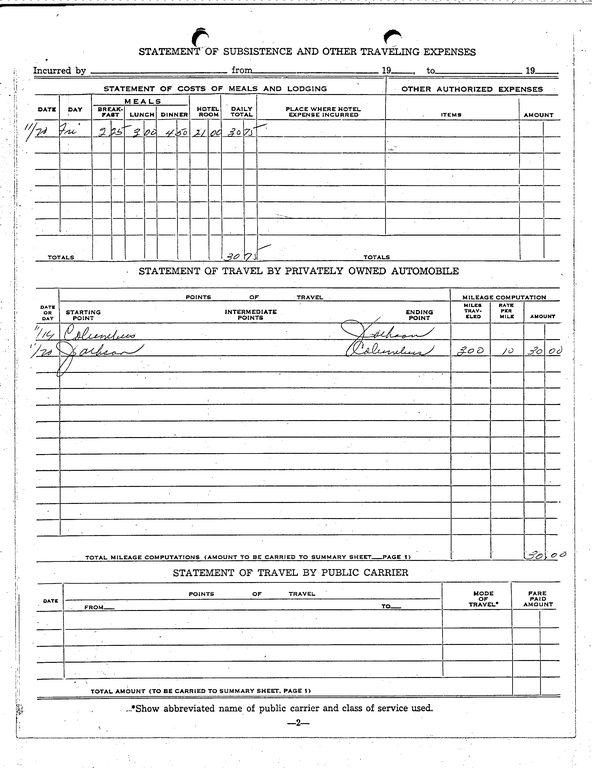 STATEMENT OF SUBSISTENCE AND OTHER TRAVELING EXPENSES
Incurred by from 19 , to 19
STATEMENT OF COSTS OF MEALS AND LODGING OTHER AUTHORIZED EXPENSES
DATE DAY MEALS BREAK-FAST LUNCH DINNER HOTEL ROOM DAILY TOTAL PLACE WHERE HOTEL EXPENSE INCURRED ITEMS AMOUNT
11/20 Fri 2 25 3 00 4 50 21 00 30 75
TOTALS 30 75 TOTALS
STATEMENT OF TRAVEL BY PRIVATELY OWNED AUTOMOBILE
POINTS OF TRAVEL MILEAGE COMPUTATION
DATE OR DAY STARTING POINT INTERMEDIATE POINTS ENDING POINT MILES TRAV-ELED RATE PER MILE AMOUNT
11/19 Columbus Jackson
11/20 Jackson Columbus 300 10 30 00
TOTAL MILEAGE COMPUTATIONS (AMOUNT TO BE CARRIED TO SUMMARY SHEET—PAGE 1) 30 00
STATEMENT OF TRAVEL BY PUBLIC CARRIER
DATE POINTS OF TRAVEL MODE OF TRAVEL* FARE PAID AMOUNT
FROM— TO—
TOTAL AMOUNT (TO BE CARRIED TO SUMMARY SHEET, PAGE 1)
*Show abbreviated name of public carrier and class of service used.
—2—